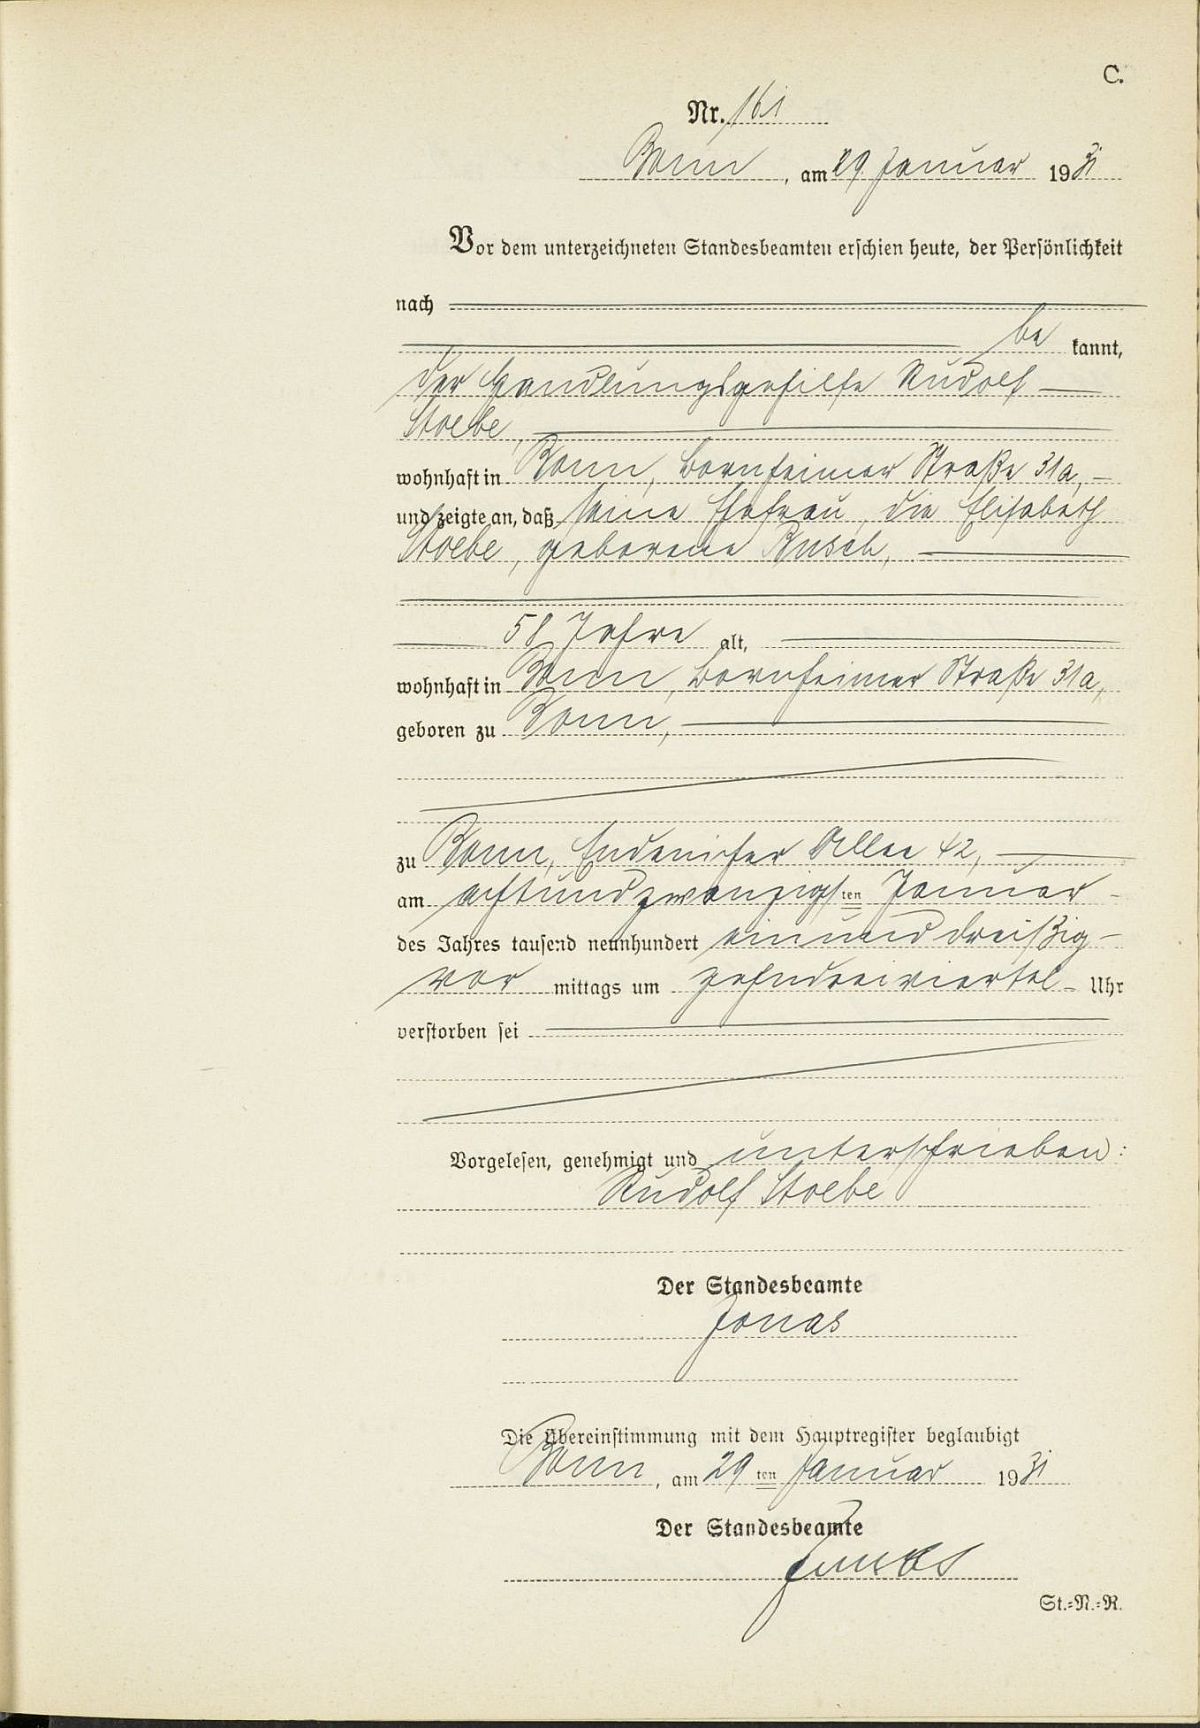 C.
Nr. 161
Bonn, am 29. Januar 1931
Vor dem unterzeichneten Standesbeamten erschien heute, der Persönlichkeit
nach
be kannt,
der Handlungsgehilfe Rudolf
Stoebe,
wohnhaft in Bonn, Bornheimer Straße 31a,
und zeigte an, daß seine Ehefrau, die Elisabeth
Stoebe, geborene Rusch,
58 Jahre alt,
wohnhaft in Bonn, Bornheimer Straße 31a,
geboren zu Bonn,
zu Bonn, Endenicher Allee 42,
am achtundzwanzigsten Januar
des Jahres tausend neunhundert einunddreißig
vor mittags um zehndreiviertel Uhr
verstorben sei
Vorgelesen, genehmigt und unterschrieben:
Rudolf Stoebe
Der Standesbeamte
Jonas
Die Übereinstimmung mit dem Hauptregister beglaubigt
Bonn, am 29ten Januar 1931
Der Standesbeamte
St.=N.=R.